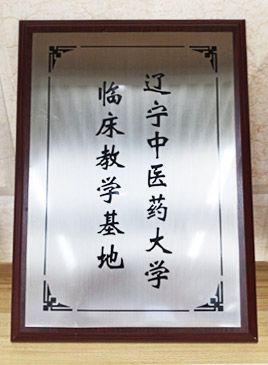 辽宁中医药大学
临床教学基地